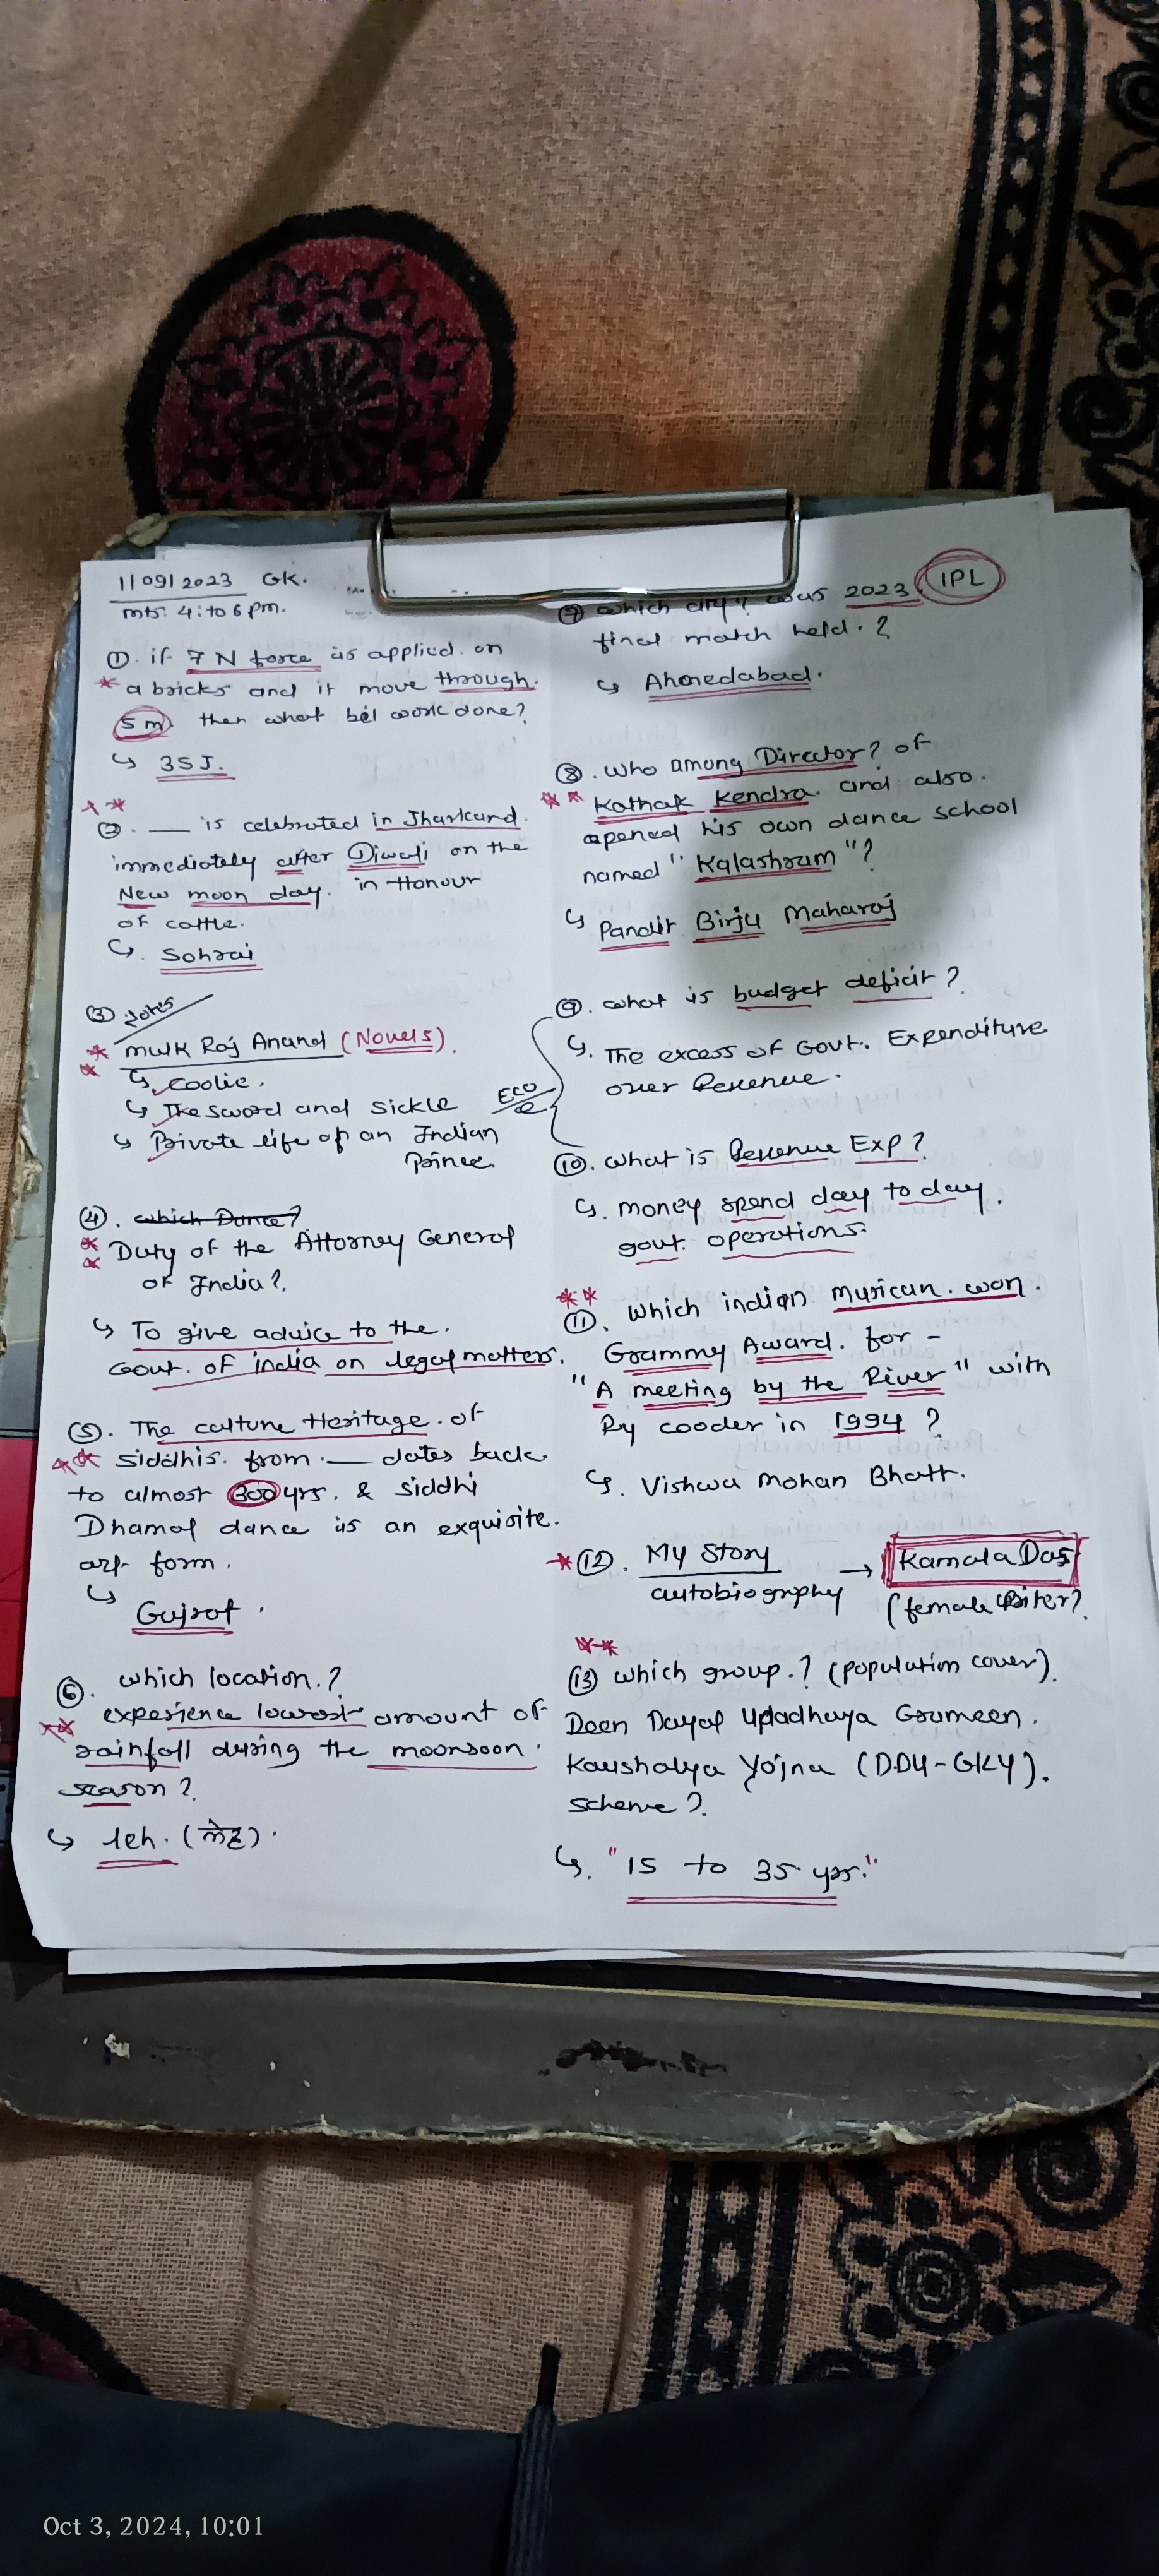 11092023 GK.
mts: 4: to 6 pm.
①. if 7 N force is applied on
* a bricks and it move through.
5 m. then what bel work done?
↳ 35 J.
**
②. ___ is celebrated in Jharkand.
immediately after Diwali on the
New moon day. in Honour
of cattle.
↳. Sohrai
③ Notes
* Mulk Raj Anand (Novels).
*
↳ Coolie.
↳ The sword and sickle
↳ Private life of an Indian
Prince
④. which Dance?
* Duty of the Attorney General
* of India?.
↳ To give advice to the.
Govt. of india on legal matters.
⑤. The culture Heritage. of
** siddhis. from. ___ dates back
to almost 300 yrs. & siddhi
Dhamal dance is an exquisite.
art form.
↳
Gujrat.
⑥. which location.?
experience lowest amount of
** rainfall during the moonsoon.
season?
↳ leh. (लेह).
⑦ which city? was 2023 IPL
final match held.?
↳ Ahmedabad.
⑧. Who among Director? of
** Kathak Kendra. and also.
opened his own dance school
named "Kalashram"?
↳ Pandit Birju Maharaj
⑨. what is budget deficit?
↳. The excess of Govt. Expenditure
over Revenue.
ECO
⑩. what is Revenue Exp?
↳. money spend day to day.
govt. operations.
**
⑪. Which indian musican. won.
Grammy Award. for -
"A meeting by the River" with
Ry cooder in 1994?
↳. Vishwa Mohan Bhatt.
*⑫. My Story → Kamala Das
autobiography (female writer?
**
⑬ which group.? (population cover).
Deen Dayal Upadhaya Grameen.
Kaushalya Yojna (DDU-GKY).
scheme?.
↳. "15 to 35 yrs."
Oct 3, 2024, 10:01